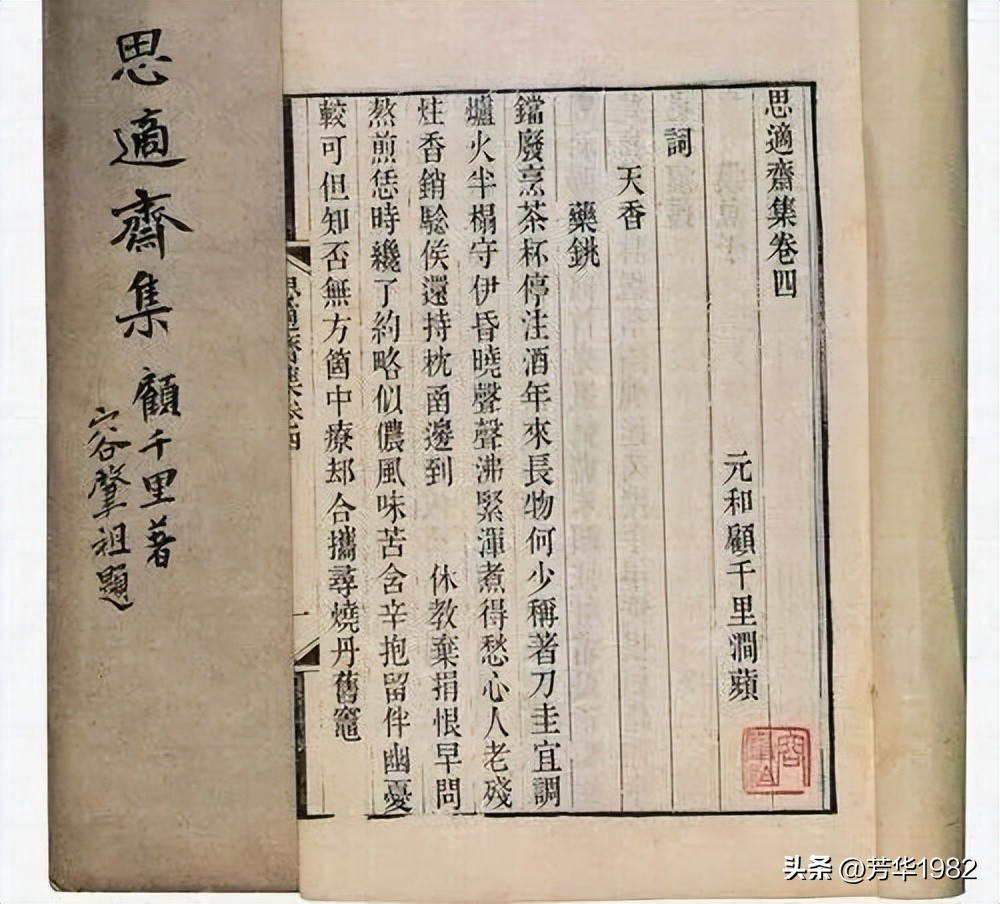 思適齋集卷四
元和顧千里澗蘋
詞
天香
藥銚
鐺廢烹茶杯停注酒年來長物何少稱著刀圭宜調
爐火半榻守伊昏曉聲聲沸緊渾煮得愁心人老殘
炷香銷驗候還持枕函邊到　休教棄捐恨早問
熬煎恁時纔了約略似儂風味苦含辛抱留伴幽憂
較可但知否無方箇中療却合攜尋燒丹舊竈
思適齋集卷四
一
思適齋集
顧千里著
容肇祖題
头条 @芳华1982